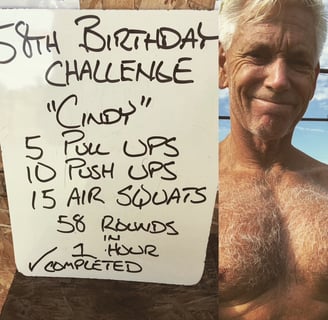 58TH BIRTHDAY
CHALLENGE
"CINDY"
5 PULL UPS
10 PUSH UPS
15 AIR SQUATS
58 ROUNDS
IN
1 HOUR
✓COMPLETED